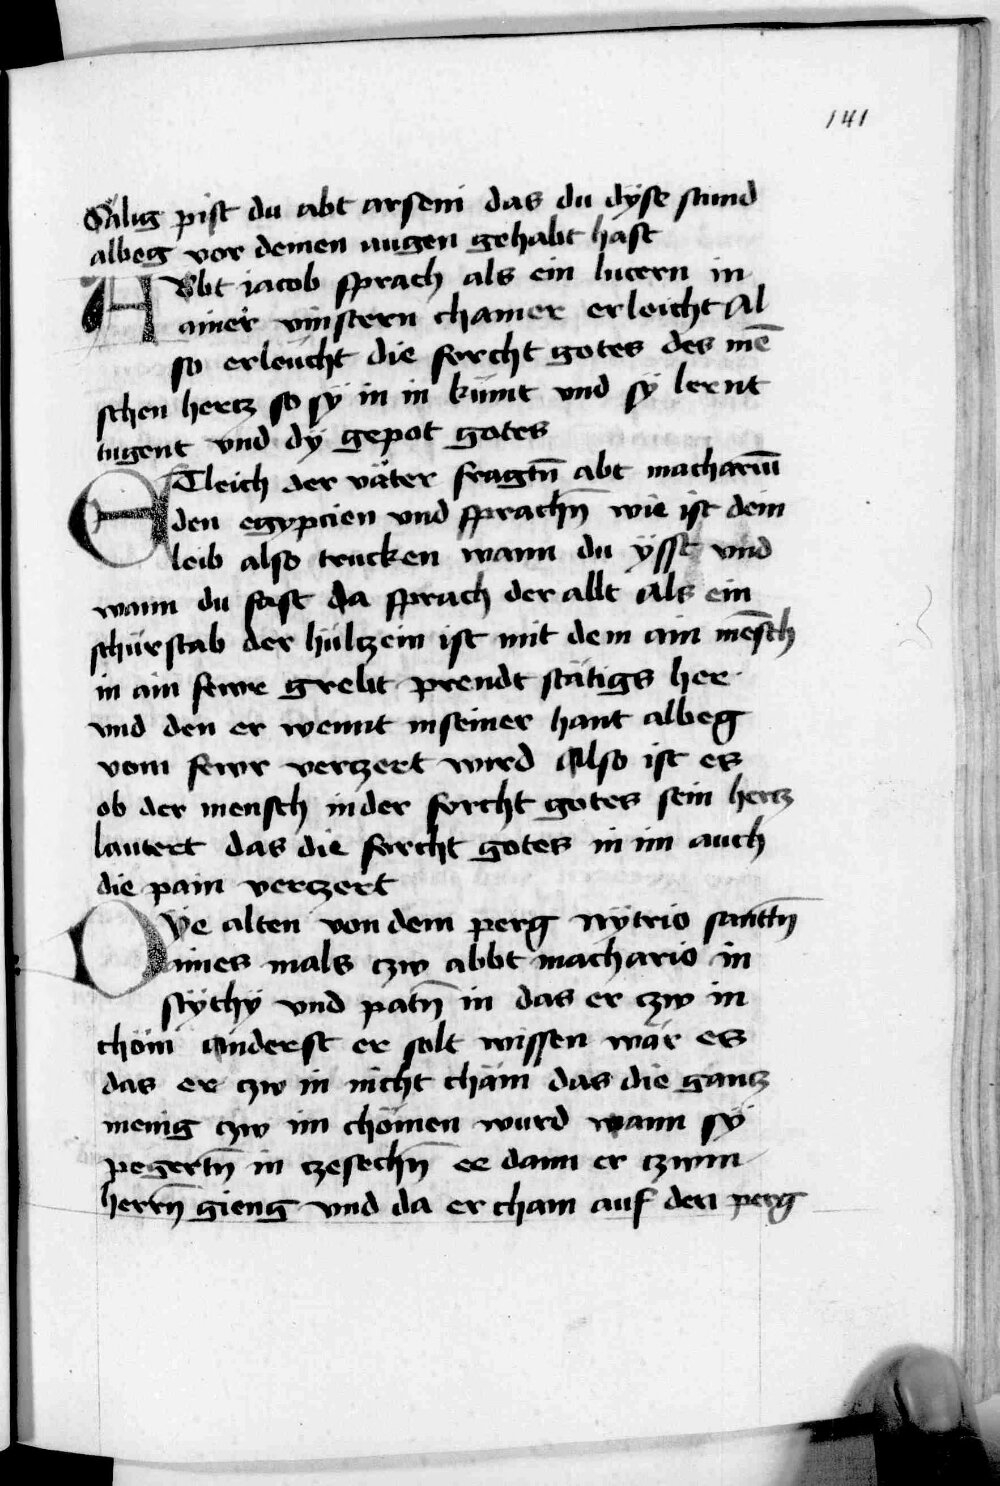 141
Sälig pist du abt arseni das du dÿse stund
albeg vor deinen augen gehabt hast
ABbt jacob sprach als ein lucern in
ainer vinstern chamer erleicht Al
so erleücht die forcht gotes des mē
schen hertz so sÿ in in kümt vnd sÿ lernt
tugent vnd dÿ gepot gotes
ETleich der väter fragtn̄ abt machariū
den egyptien vnd sprachn̄ wie ist dein
leib also trucken wann du ÿsst vnd
wann du fast da sprach der allt Als ein
schürstab der hültzein ist mit dem ain mēsch
in ain fewr grebt prendt stätigs her
vnd den er wennt in seiner hant albeg
vom fewr verczert wird Also ist es
ob der mensch in der forcht gotes sein hertz
lautert das die forcht gotes in im auch
die pain verczert
Dÿe alten von dem perg nÿtrio santtn̄
aines mals czw abbt machario in
scÿthÿ vnd patn̄ in das er czw in
chöm anderst er solt wissen wär es
das er czw in nicht chäm das die gantz
menig czw im chömen wurd wann sÿ
pegertn̄ in czesechn̄ ee dann er czwm
herrn̄ gieng vnd da er cham auf den perg